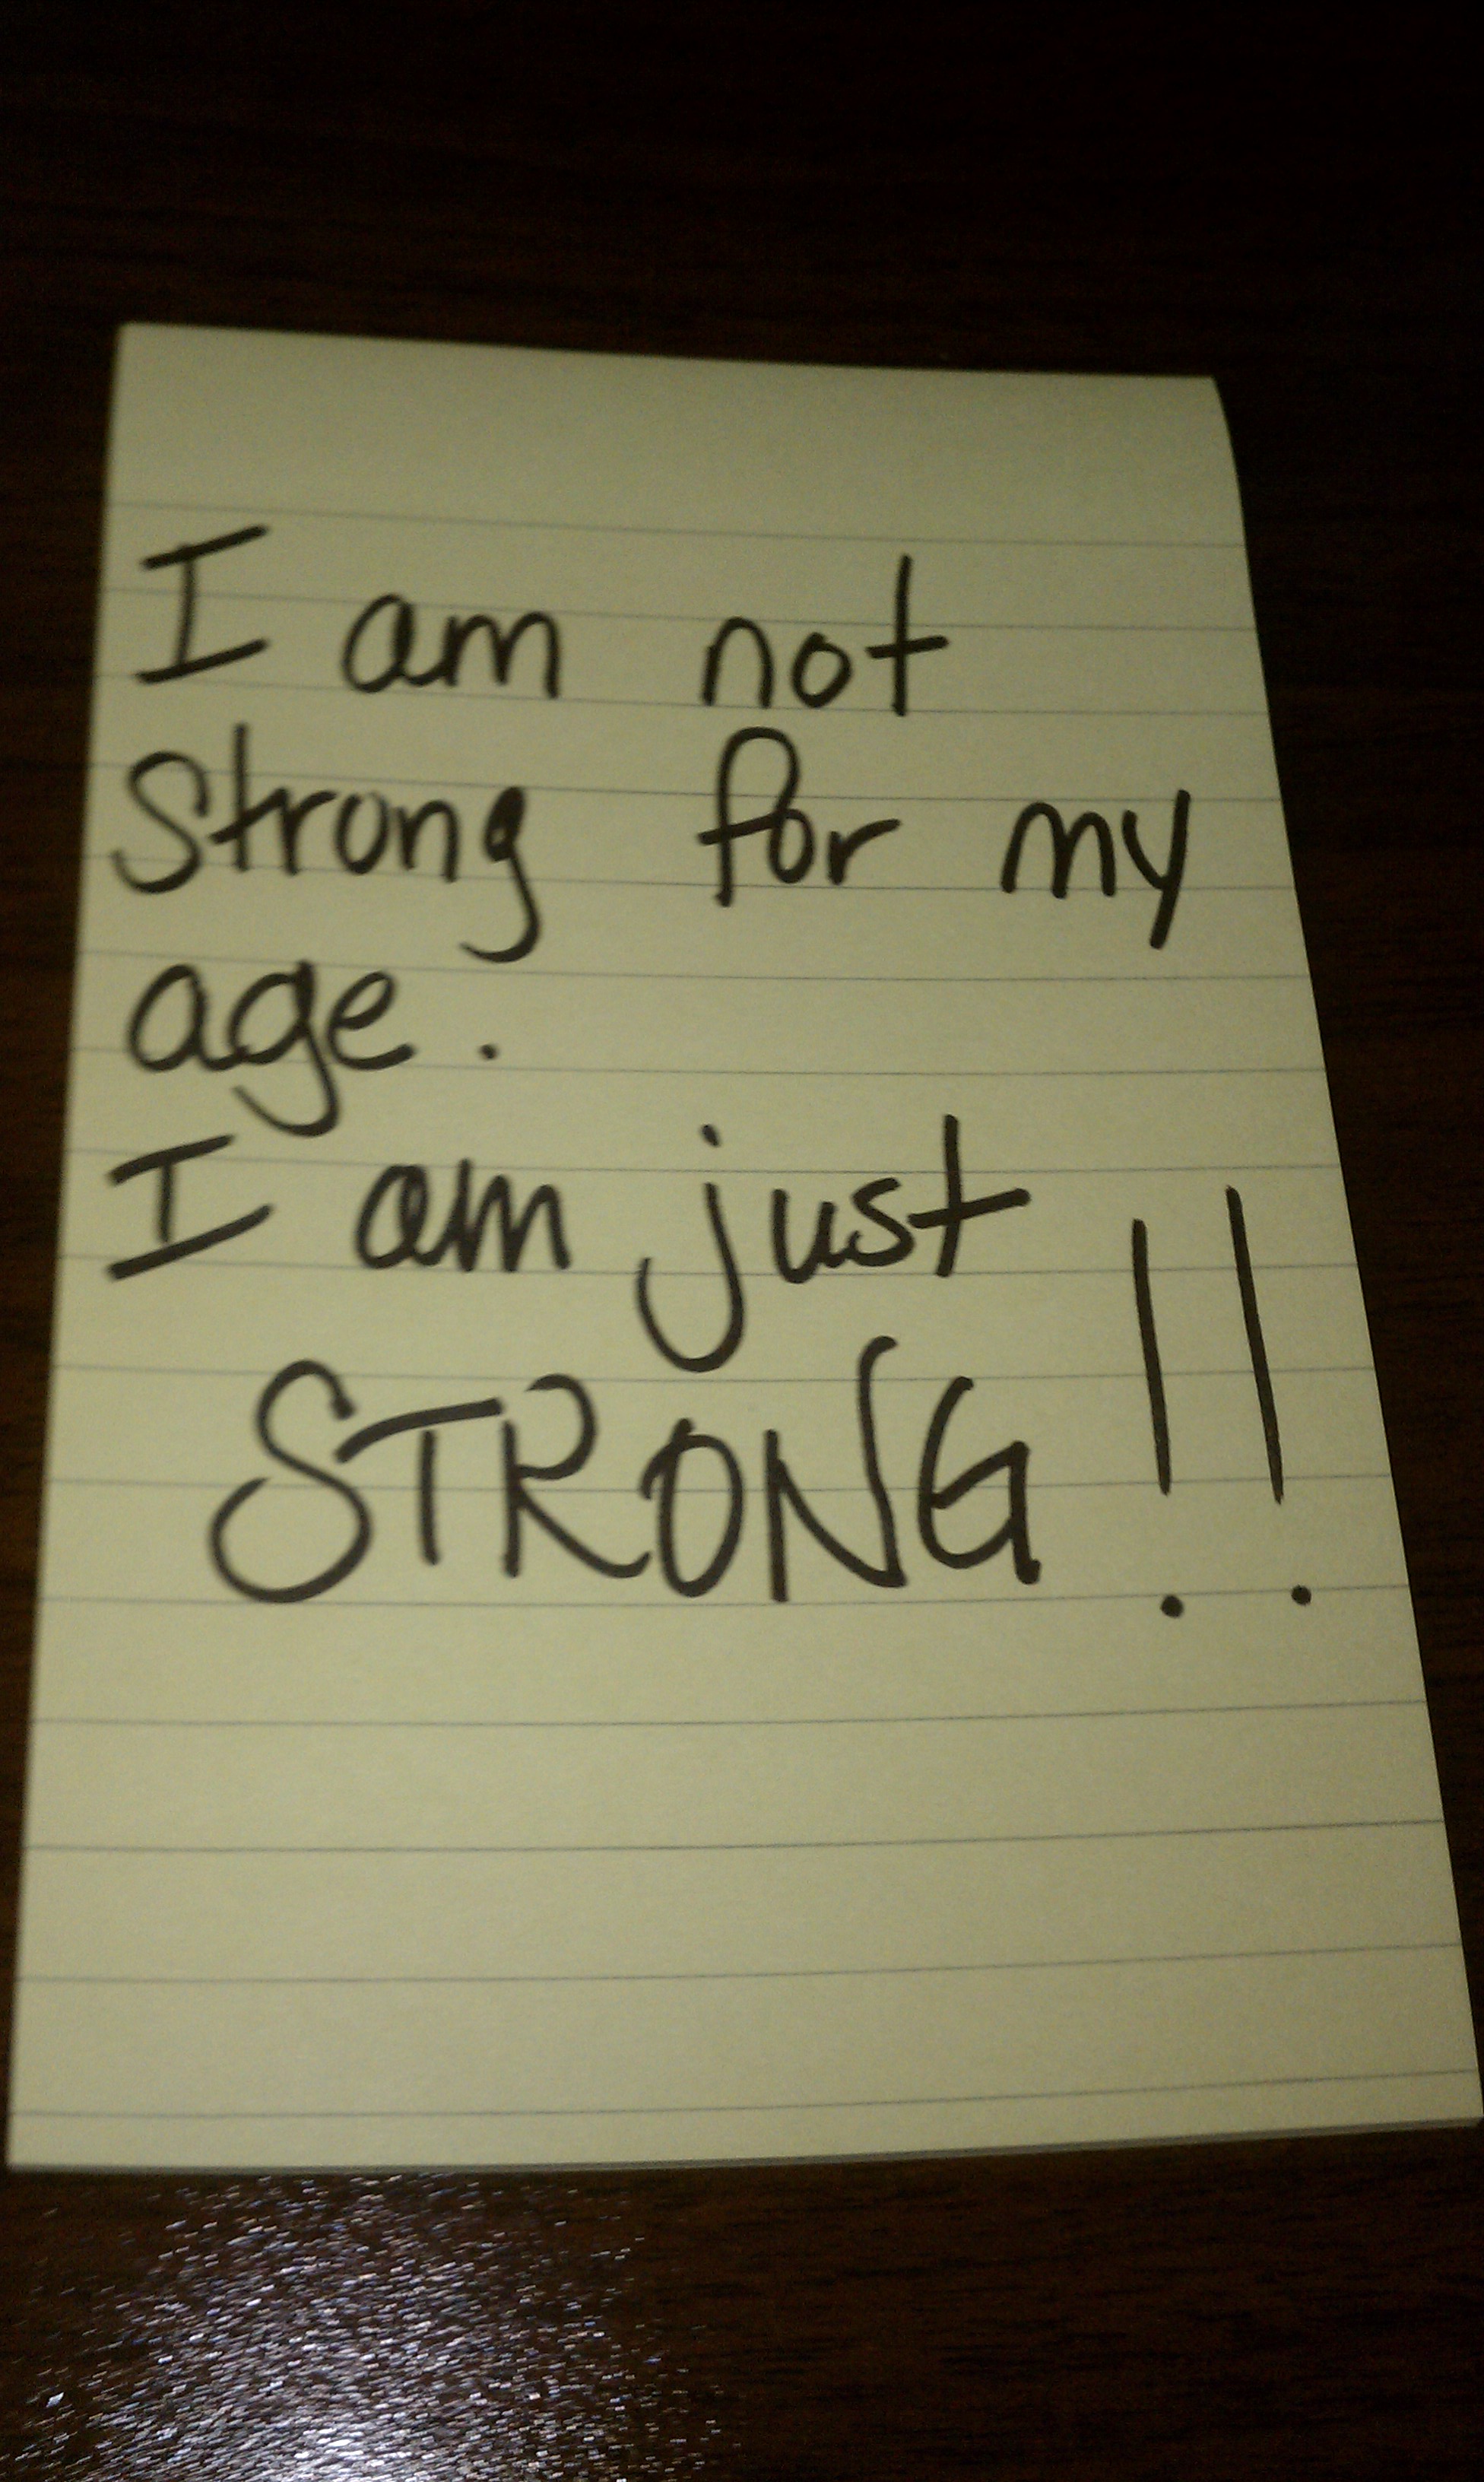 I am not
Strong for my
age.
I am just
STRONG!!